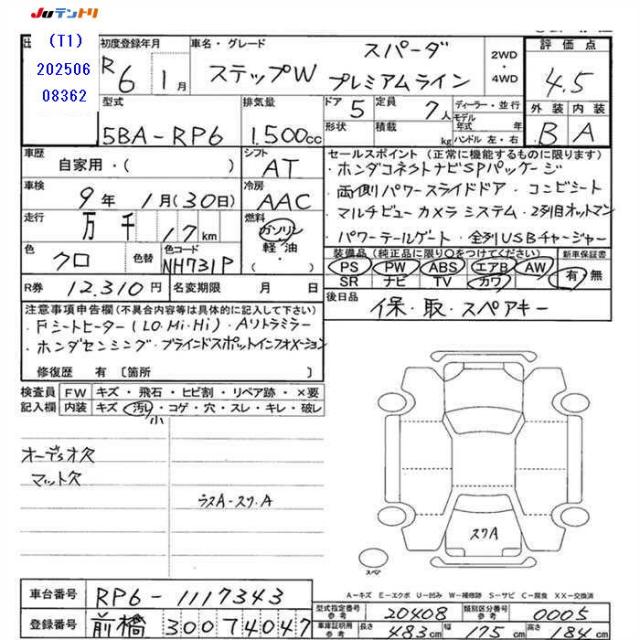 JUテントリ
(T1)
202506
08362
初度登録年月
R6 1月
車名・グレード
ステップW スパーダ
プレミアムライン
2WD
・
4WD
評価点
4.5
外装 内装
B A
型式
5BA-RP6
排気量
1.500cc
ドア 5
形状
定員 7人
積載 kg
ディーラー・並行
モデル年式 年
ハンドル 左・右
車歴
自家用・( )
シフト
AT
車検
9年 1月(30日)
冷房
AAC
走行
万 千 17km
燃料
ガソリン
軽油
色
クロ
色替
色コード
NH731P
R券 12.310円
名変期限 月 日
セールスポイント(正常に機能するものに限ります)
・ホンダコネクトナビSPパッケージ
・両側パワースライドドア・コンビシート
・マルチビューカメラシステム・2列目オットマン
・パワーテールゲート・全列USBチャージャー
装備品(純正品に限り○をつけてください)
PS PW ABS エアB AW
SR ナビ TV カワ
新車保証書
有・無
後日品
保・取・スペアキー
注意事項申告欄(不具合内容等は具体的に記入して下さい)
・Fシートヒーター(LO.Mi.Hi)・Aソトラミラー
・ホンダセンシング・ブラインドスポットインフォメーション
修復歴 有〔箇所 〕
検査員
記入欄
FW キズ・飛石・ヒビ割・リペア跡・×要
内装 キズ・汚レ・コゲ・穴・スレ・キレ・破レ
小
オーディオ欠
マット欠
ラスA-スリ.A
スリA
スペア
A−キズ E−エクボ U−凹み W−補修跡 S−サビ C−腐食 XX−交換済
車台番号 RP6-1117343
登録番号 前橋 300 な 4047
型式指定番号
参考 20408
類別区分番号
参考 0005
車庫証明用
参考
長さ 483cm 幅 175cm 高さ 184cm